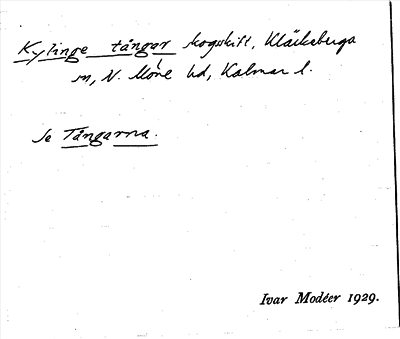 Kylinge tångar skogskift, Kläckeberga
sn, N. Möre hd, Kalmar l.
Se Tångarna.
Ivar Modéer 1929.